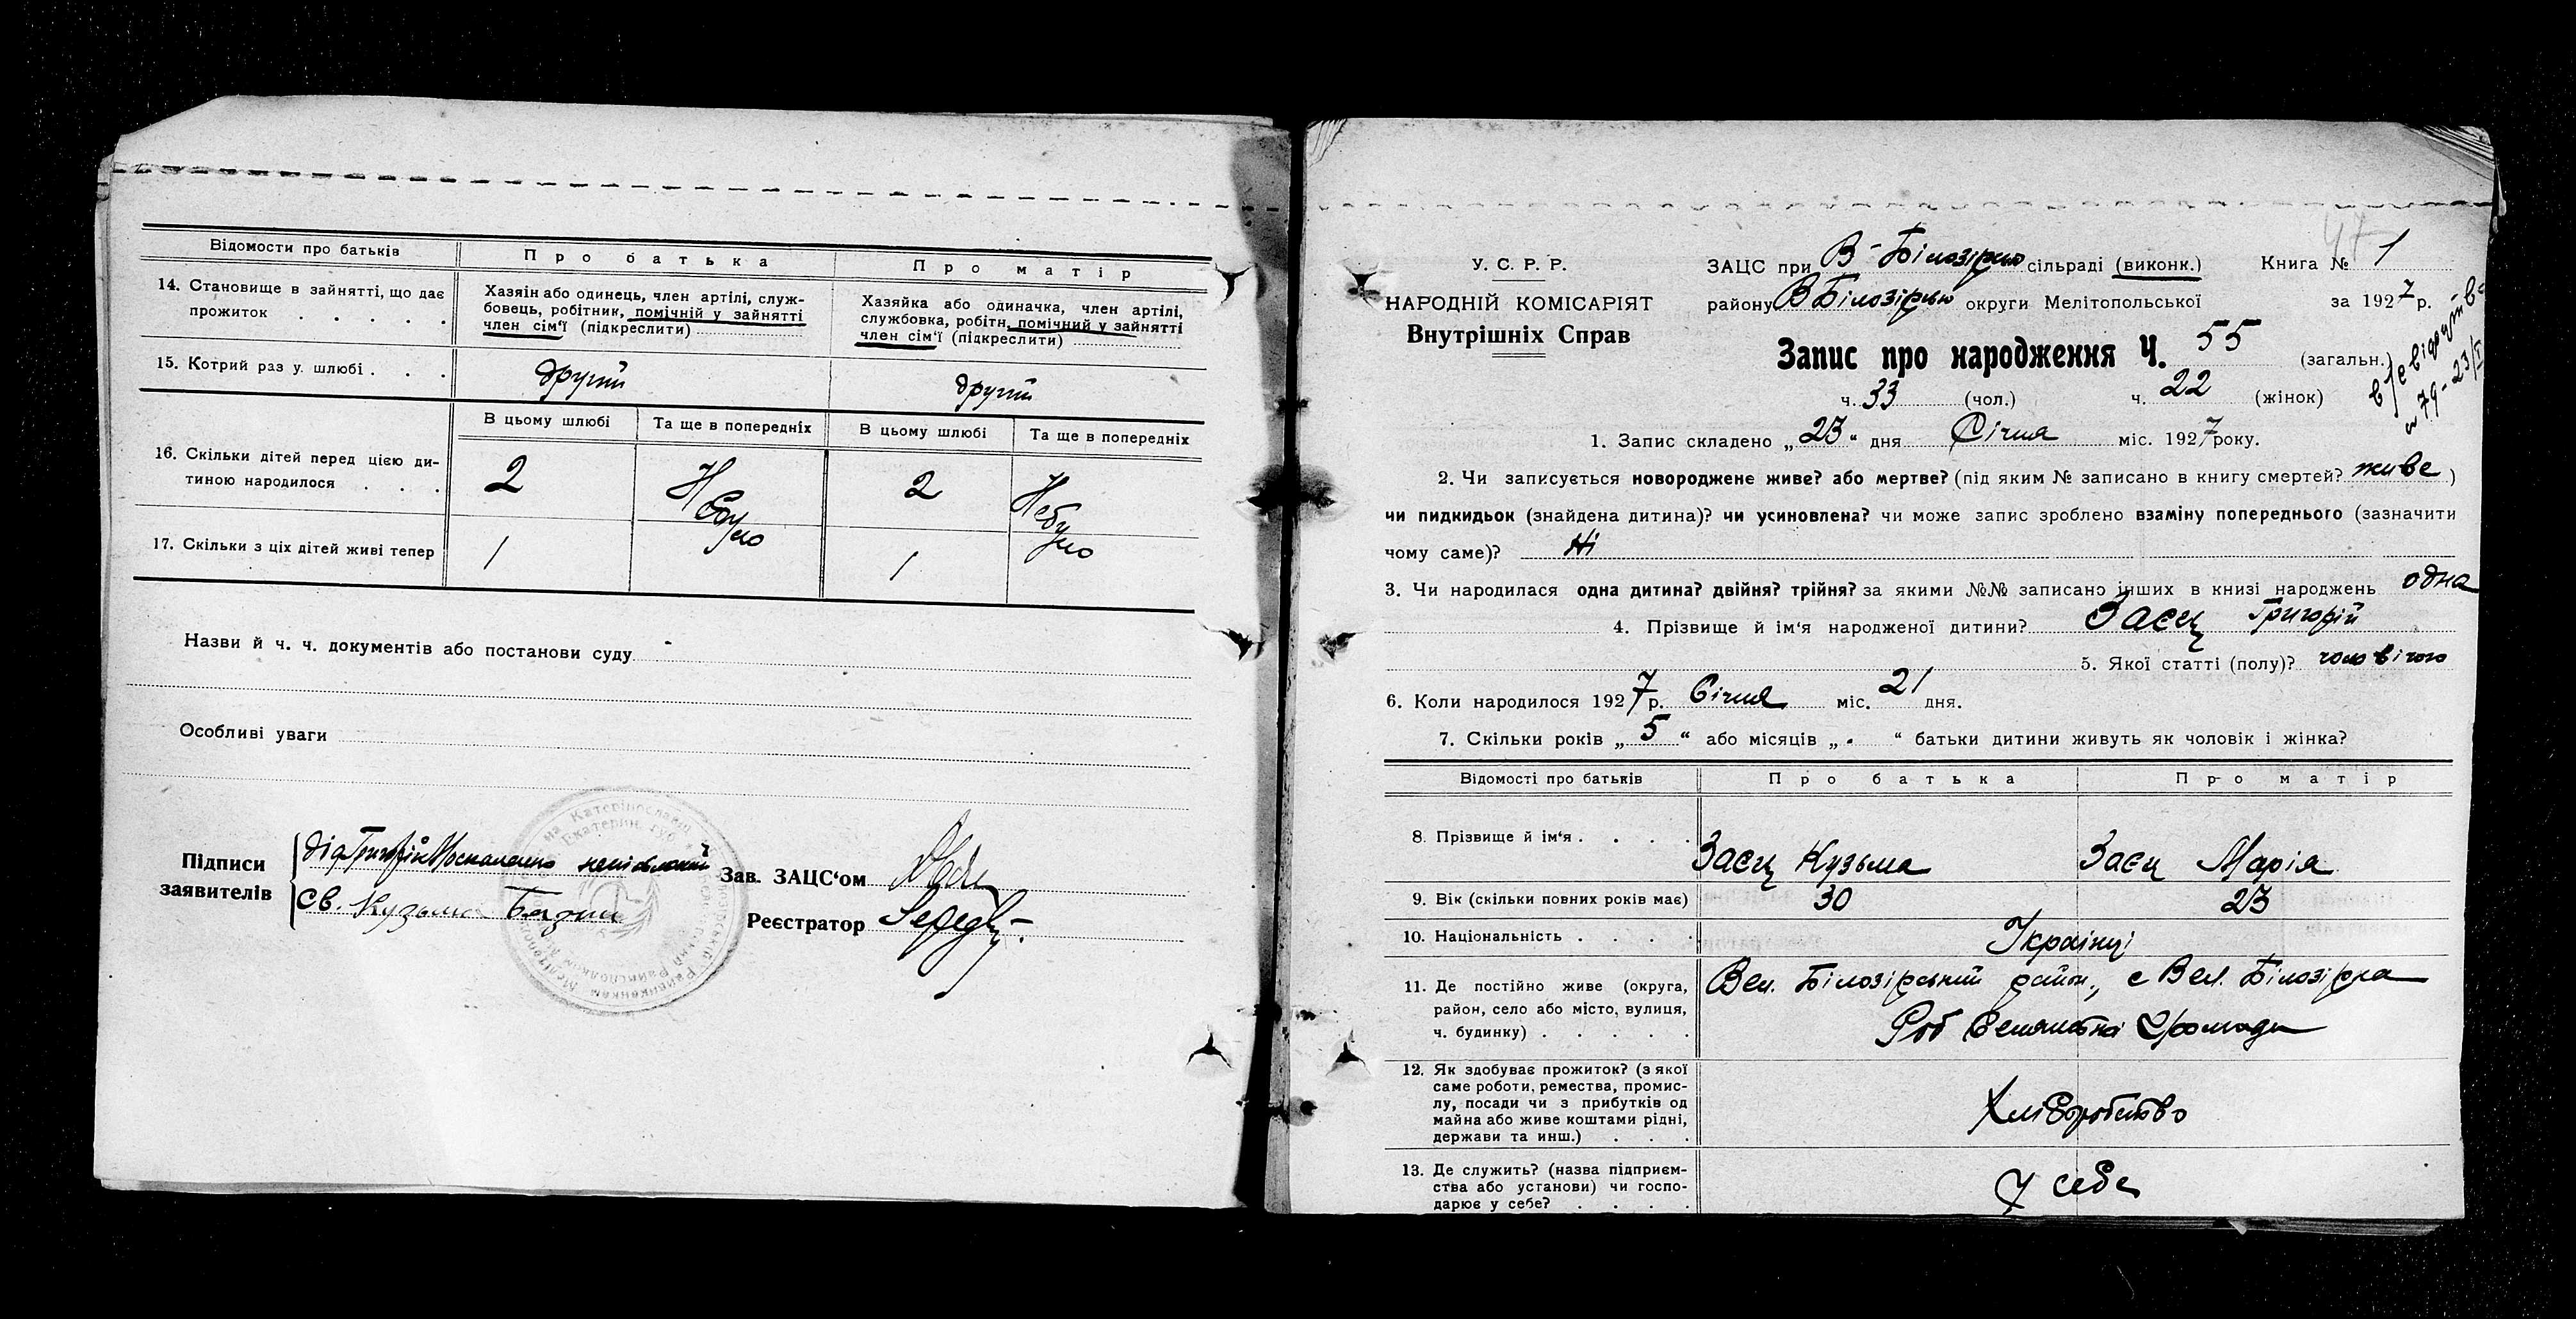 Відомости про батьків
Про батька
Про матір
14. Становище в зайнятті, що дає
прожиток . . . . .
Хазяїн або одинець, член артілі, служ-
бовець, робітник, помічній у зайнятті
член сім'ї (підкреслити)
Хазяйка або одиначка, член артілі,
службовка, робітн, помічний у зайнятті
член сім'ї (підкреслити)
15. Котрий раз у шлюбі . . .
другий
другий
В цьому шлюбі
Та ще в попередніх
В цьому шлюбі
Та ще в попередніх
16. Скільки дітей перед цією ди-
тиною народилося . . .
2
Не було
2
Не було
17. Скільки з ціх дітей живі тепер
1
1
Назви й ч. ч. документів або постанови суду
Особливі уваги
Підписи
заявителів
дід Григорій Москаленко
св. Кузьма
Зав. ЗАЦС'ом
Реєстратор
У. С. Р. Р.
НАРОДНІЙ КОМІСАРІЯТ
Внутрішніх Справ
ЗАЦС при В-Білозірськ сільраді (виконк.)
Книга № 1
району В Білозірськ округи Мелітопольської
за 1927 р.
Запис про народження Ч. 55 (загальн.)
ч. 33 (чол.) ч. 22 (жінок)
№ 79 - 23/I
1. Запис складено „23“ дня Січня міс. 1927 року.
2. Чи записується новороджене живе? або мертве? (під яким № записано в книгу смертей? живе )
чи пидкидьок (знайдена дитина)? чи усиновлена? чи може запис зроблено взаміну попереднього (зазначити
чому саме)? Ні
3. Чи народилася одна дитина? двійня? трійня? за якими №№ записано інших в книзі народжень одна
4. Прізвище й ім'я народженої дитини? Заєц Григорій
5. Якої статті (полу)? чоловічого
6. Коли народилося 1927 р. Січня міс. 21 дня.
7. Скільки років „5“ або місяців „-“ батьки дитини живуть як чоловік і жінка?
Відомості про батьків
Про батька
Про матір
8. Прізвище й ім'я . . . .
Заєц Кузьма
Заєц Марія
9. Вік (скільки повних років має)
30
23
10. Національність . . . .
Українці
11. Де постійно живе (округа,
район, село або місто, вулиця,
ч. будинку) . . . . .
Вел. Білозірський район, с Вел. Білозірка
Громади
12. Як здобуває прожиток? (з якої
саме роботи, ремества, промис-
лу, посади чи з прибутків од
майна або живе коштами рідні,
держави та инш.) . . .
Хліборобство
13. Де служить? (назва підприєм-
ства або установи) чи госпо-
дарює у себе? . . . .
У себе